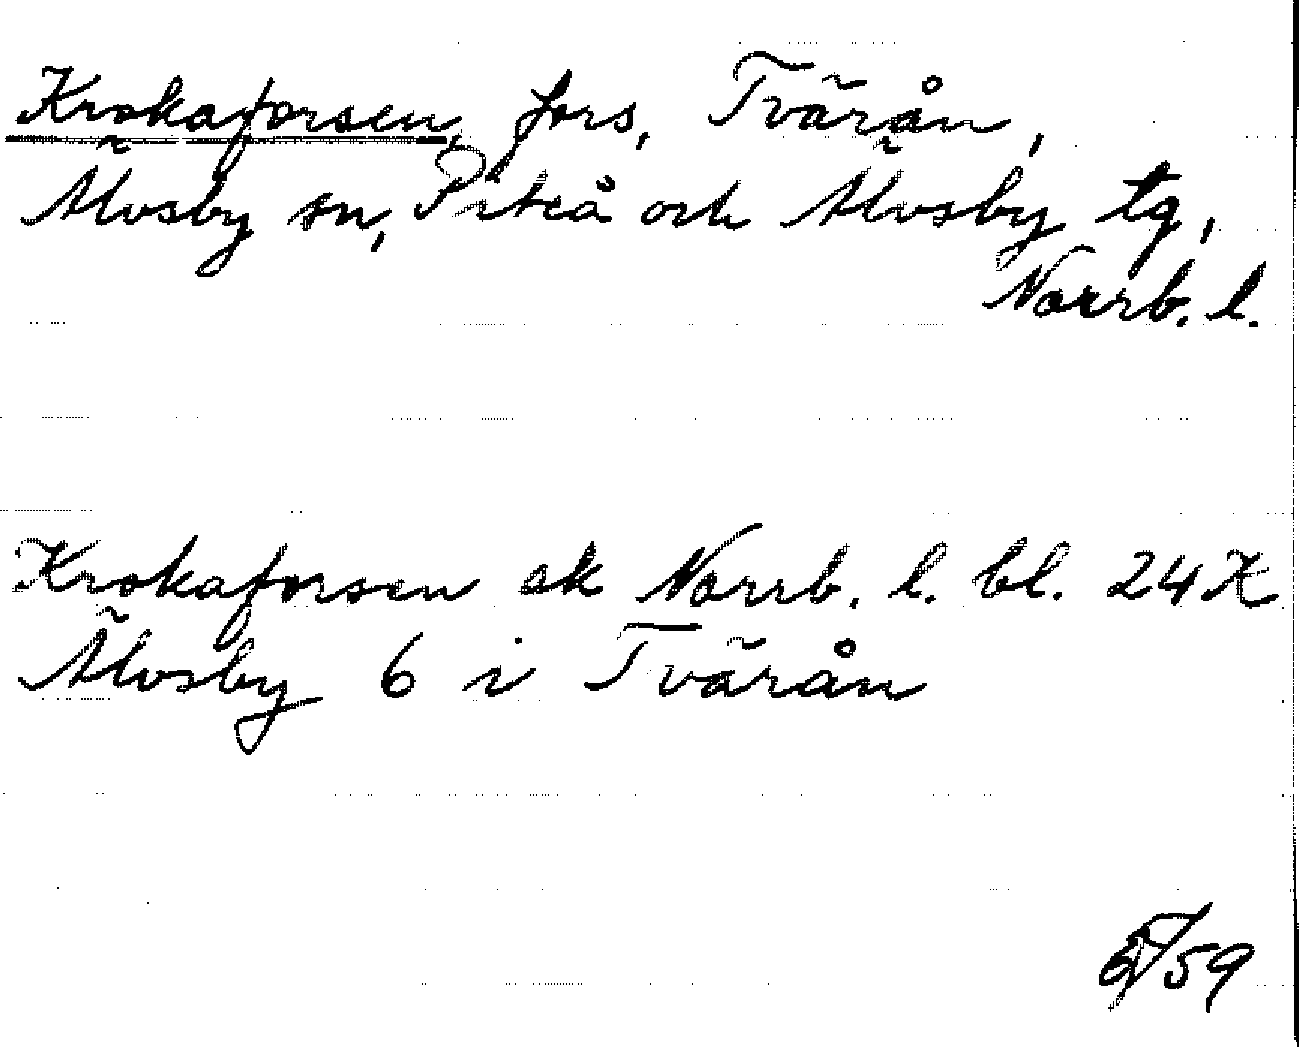 Krokaforsen, fors, Tvärån,
Älvsby sn, Piteå och Älvsby tg,
Norrb. l.
Krokaforsen ek Norrb. l. bl. 24 K
Älvsby 6 i Tvärån
/59